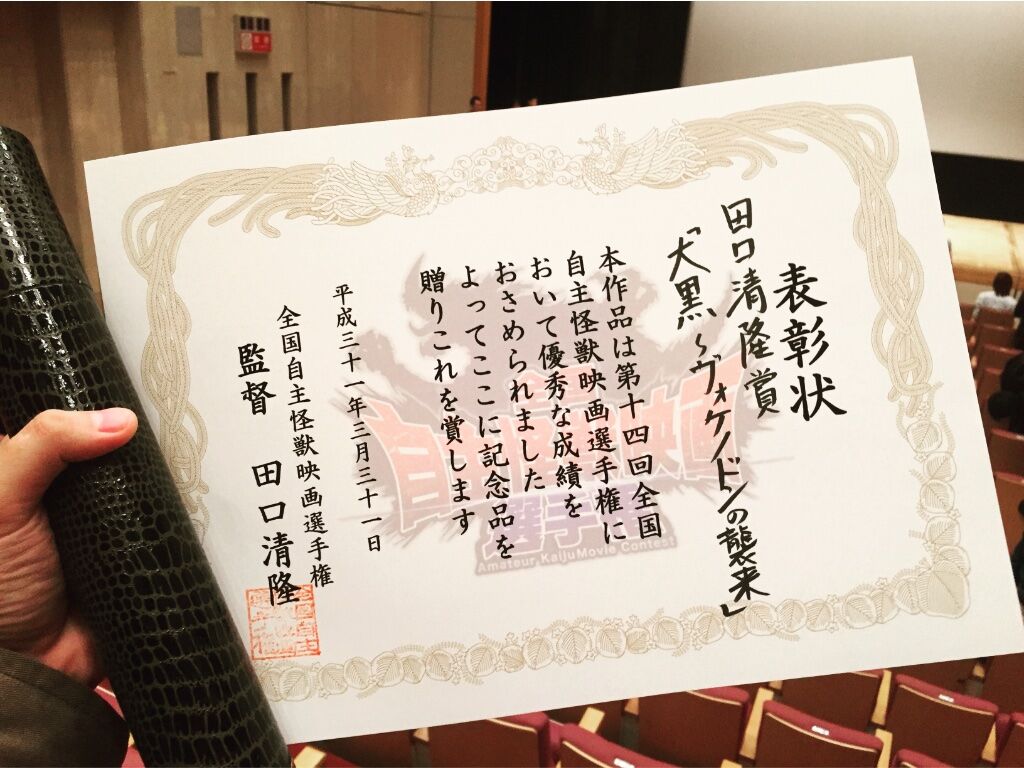 表彰状
田口清隆賞
「大黒〜ヴォケノドンの襲来」
本作品は第十四回全国
自主怪獣映画選手権に
おいて優秀な成績を
おさめられました
よってここに記念品を
贈りこれを賞します
平成三十一年三月三十一日
全国自主怪獣映画選手権
監督 田口清隆
選手権
Amateur Kaiju Movie Contest